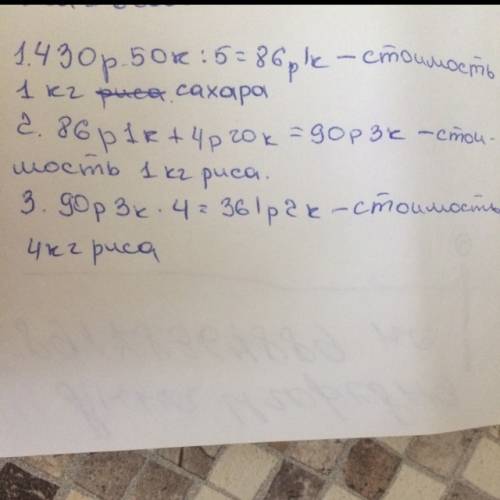 1. 430р. 50к : 5 = 86р 1к – стоимость
1 кг риса сахара
2. 86р 1к + 4р 20к = 90р 3к – стои-
мость 1 кг риса.
3. 90р 3к · 4 = 361р 2к – стоимость
4кг риса